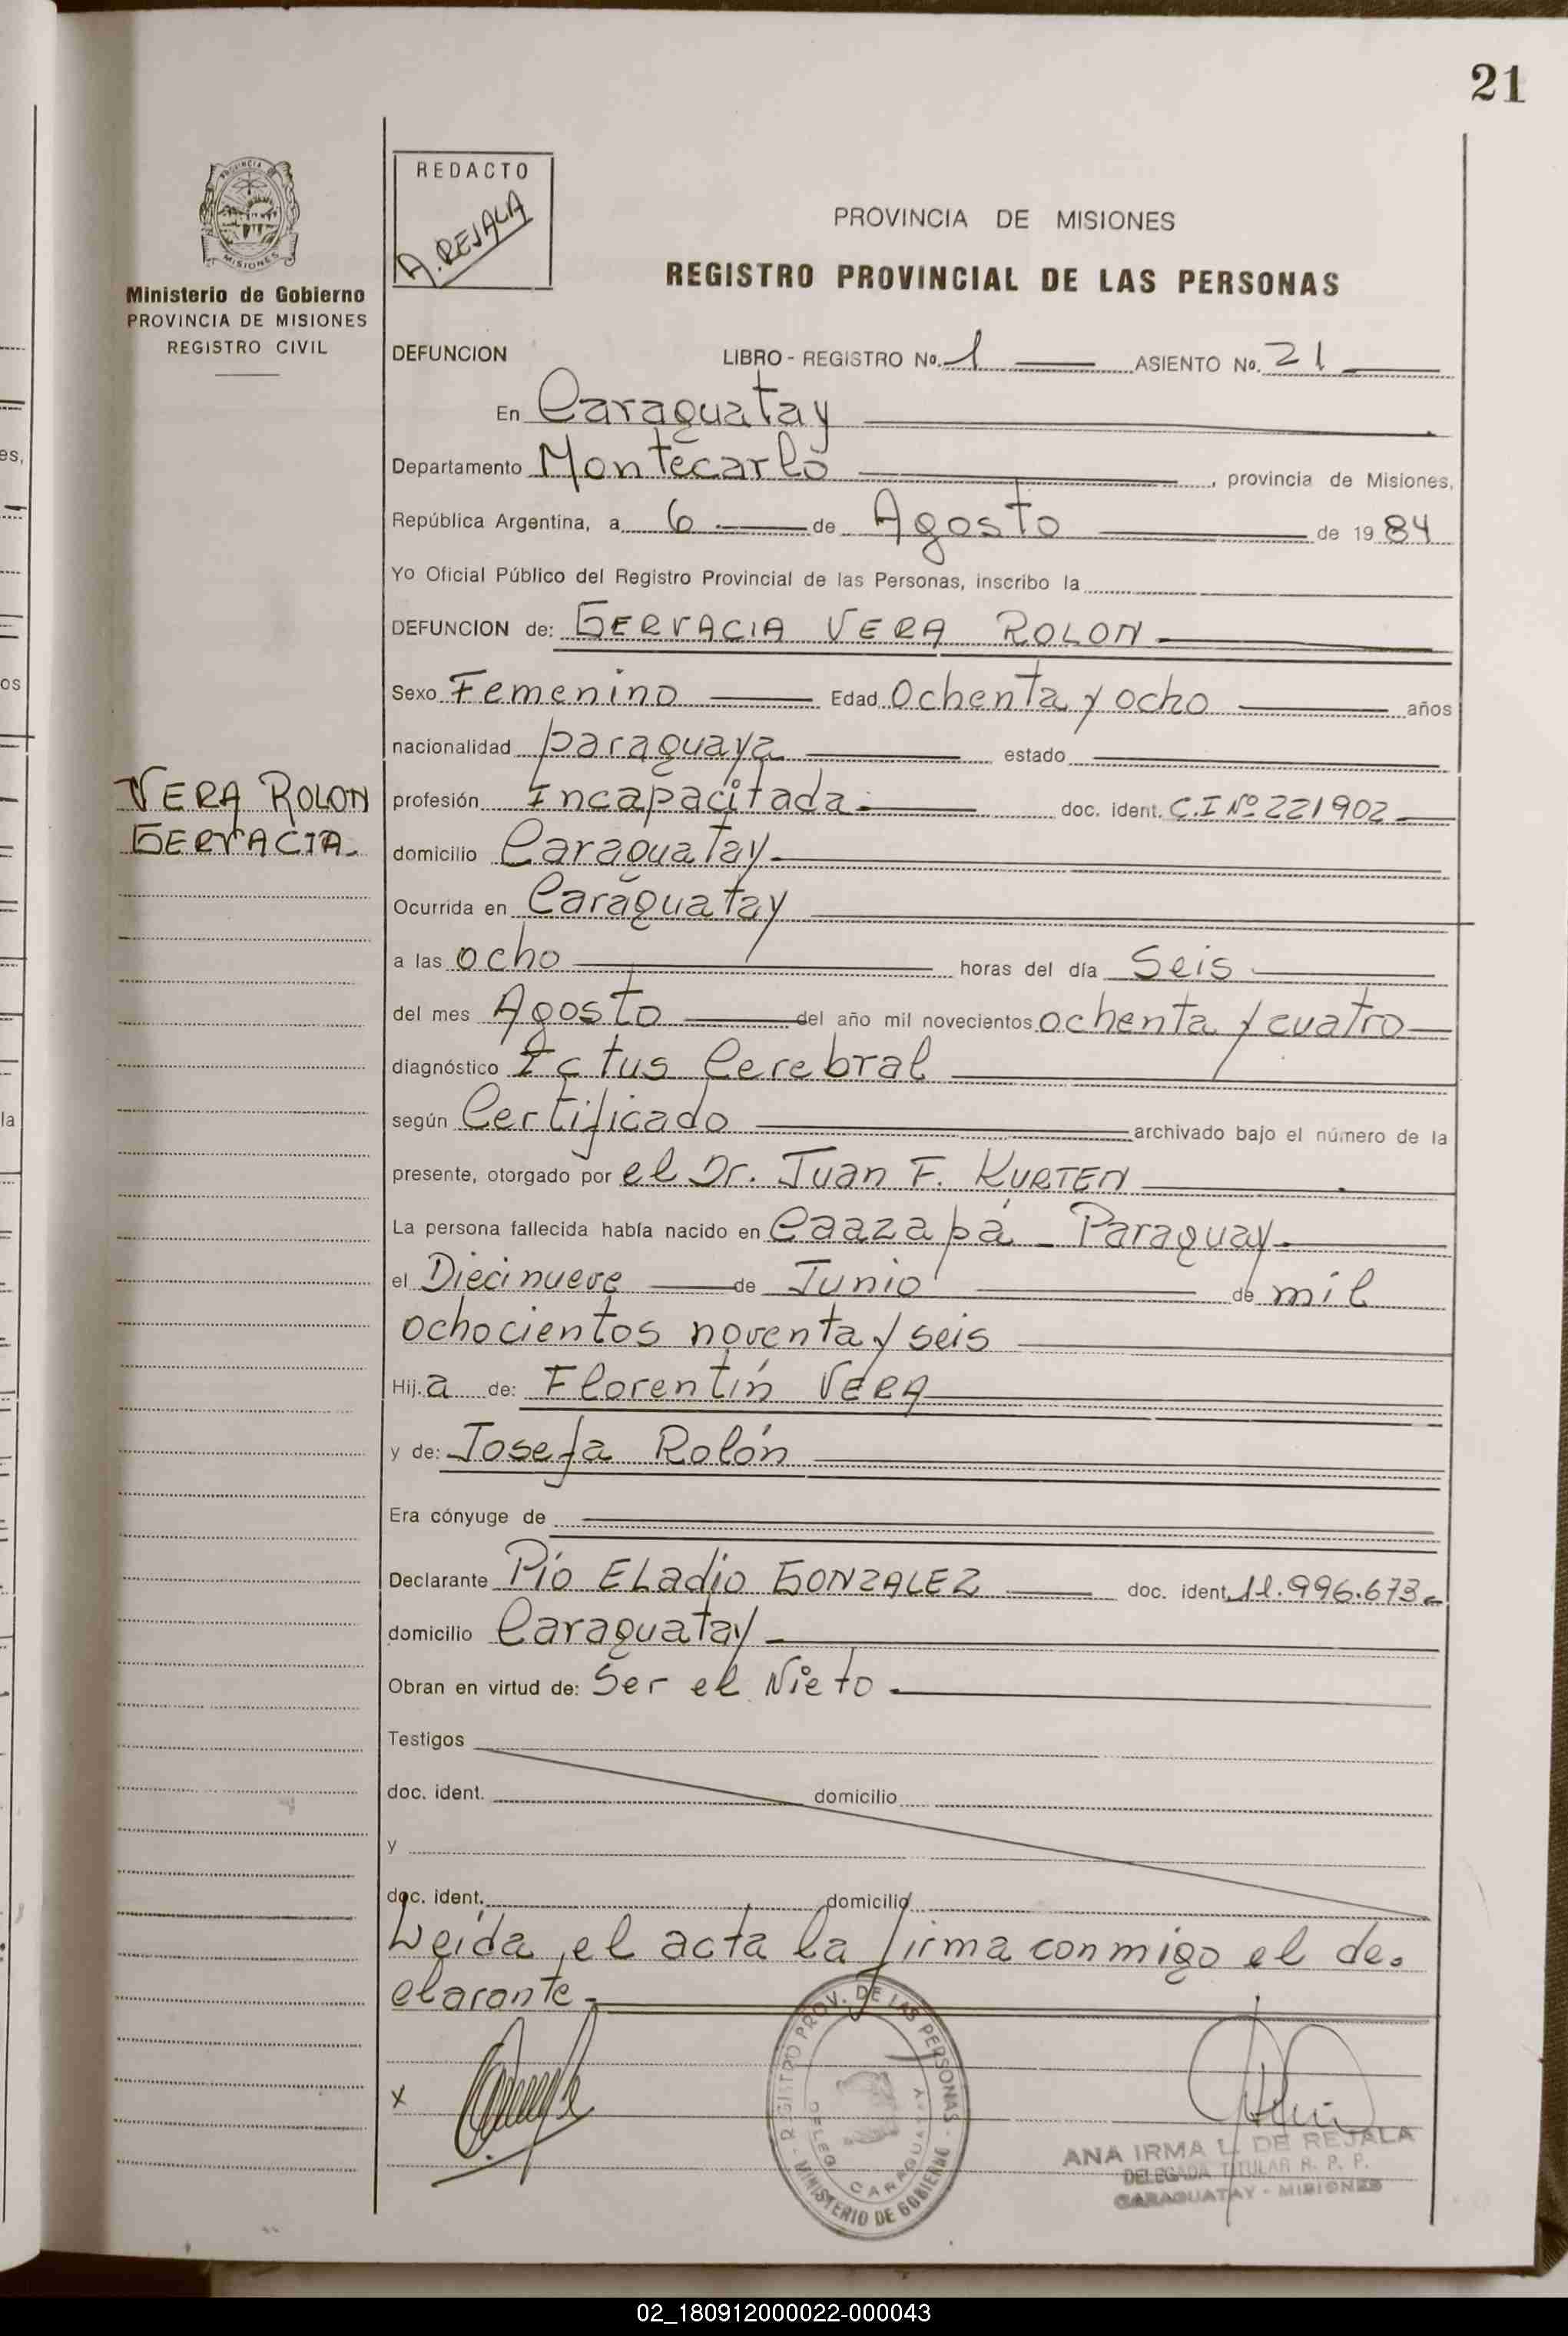 21
REDACTO
A. REJALA
PROVINCIA DE MISIONES
REGISTRO PROVINCIAL DE LAS PERSONAS
MISIONES
Ministerio de Gobierno
PROVINCIA DE MISIONES
REGISTRO CIVIL
DEFUNCION LIBRO - REGISTRO No. 1 ASIENTO No. 21
En Caraguatay
Departamento Montecarlo, provincia de Misiones,
República Argentina, a 6 de Agosto de 1984
Yo Oficial Público del Registro Provincial de las Personas, inscribo la
DEFUNCION de: GERVACIA VERA ROLON
Sexo Femenino Edad Ochenta y ocho años
nacionalidad paraguaya estado
VERA ROLON
GERVACIA
profesión Incapacitada doc. ident. C.I Nº 221902
domicilio Caraguatay
Ocurrida en Caraguatay
a las ocho horas del día Seis
del mes Agosto del año mil novecientos ochenta y cuatro
diagnóstico Ictus Cerebral
según Certificado archivado bajo el número de la
presente, otorgado por el Dr. Juan F. KURTEN
La persona fallecida había nacido en Caazapá - Paraguay
el Diecinueve de Junio de mil
ochocientos noventa y seis
Hij.a de: Florentín VERA
y de: Josefa Rolón
Era cónyuge de
Declarante Pío ELadio GONZALEZ doc. ident. 11.996.673
domicilio Caraguatay
Obran en virtud de: Ser el Nieto
Testigos
doc. ident. domicilio
y
doc. ident. domicilio
Leída el acta la firma conmigo el de-
clarante
REGISTRO PROV. DE LAS PERSONAS
DELEG. CARAGUATAY
MINISTERIO DE GOBIERNO
x
ANA IRMA L. DE REJALA
DELEGADA TITULAR R. P. P.
CARAGUATAY - MISIONES
02_180912000022-000043